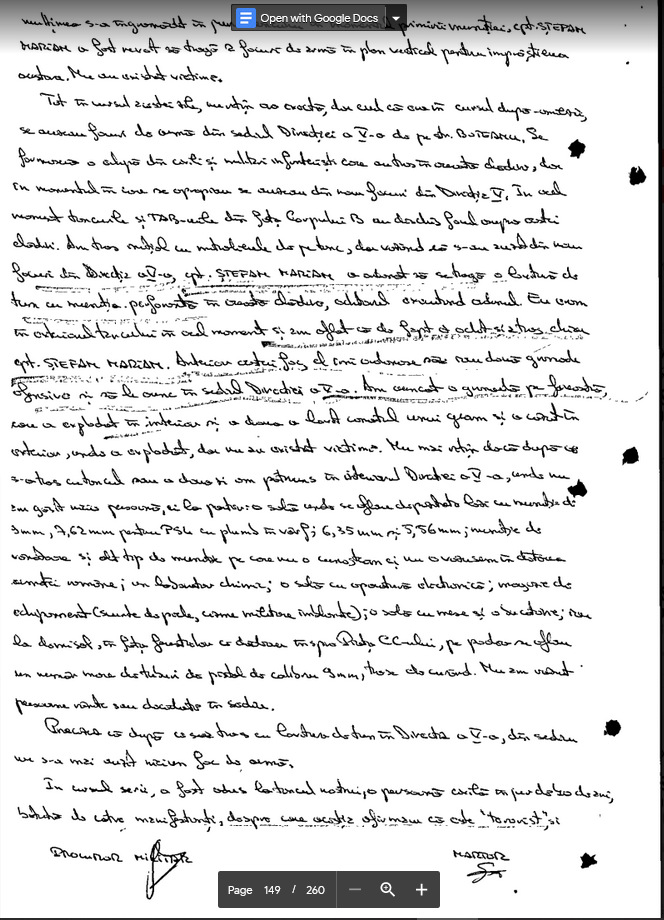 Open with Google Docs
mulțimea s-a îngrămădit în primirii muniției, cpt. ȘTEFAN
MARIAN a fost nevoit să tragă 2 focuri de armă în plan vertical pentru împrăștierea
acestora. Nu au existat victime.
Tot în cursul acestei zile, nu rețin ora exactă, dar cred că era în cursul după-amiezii,
se auzeau focuri de armă din sediul Direcției a V-a de pe str. BOTEANU. Se
formase o echipă din civili și militari infanteriști care au tras în această clădire, dar
în momentul în care se apropiau se auzeau din nou focuri din Direcția V. În acel
moment tancurile și TAB-urile din fața Corpului B au deschis focul asupra acestei
clădiri. Am tras inițial cu mitralierele de pe tanc, dar văzând că s-au auzit din nou
focuri din Direcția a V-a, cpt. ȘTEFAN MARIAN a ordonat să se tragă o lovitură de
tun cu muniția perforantă în această clădire, ochitorul executând ordinul. Eu eram
în exteriorul tancului în acel moment și am aflat că de fapt a ochit și a tras chiar
cpt. ȘTEFAN MARIAN. Anterior acestui foc, el îmi ordonase să iau două grenade
ofensive și să le arunc în sediul Direcției a V-a. Am aruncat o grenadă pe fereastră,
care a explodat în interior și a doua a lovit canatul unui geam și a căzut în
exterior, unde a explodat, dar nu au existat victime. Nu mai rețin dacă după ce
s-a tras cu tancul sau a doua zi am pătruns în interiorul Direcției a V-a, unde nu
am găsit nicio persoană, ci la parter o sală unde se aflau depozitate lăzi cu muniție de
9mm, 7,62mm pentru PSL cu plumb în vârf; 6,35mm și 5,56mm; muniție de
vânătoare și alt tip de muniție pe care nu o cunoșteam și nu o văzusem în dotarea
armatei române; un laborator chimic; o sală cu aparatură electronică; magazie de
echipament (scurte de piele, cizme militare îmblănite); o sală cu mese și o bucătărie; iar
la demisol, în fața ferestrelor ce dădeau înspre Piața CC-ului, pe podea se aflau
un număr mare de tuburi de pistol de calibru 9mm, trase de curând. Nu am văzut
persoane rănite sau decedate în sediu.
Precizez că după ce s-a tras cu lovitura de tun în Direcția a V-a, din sediu
nu s-a mai auzit niciun foc de armă.
În cursul serii, a fost adus la tancul nostru, o persoană civilă în jur de 20 de ani,
bătută de către manifestanți, despre care aceștia afirmau că este "terorist", și
PROCUROR MILITAR MARTOR
Page 149 / 260